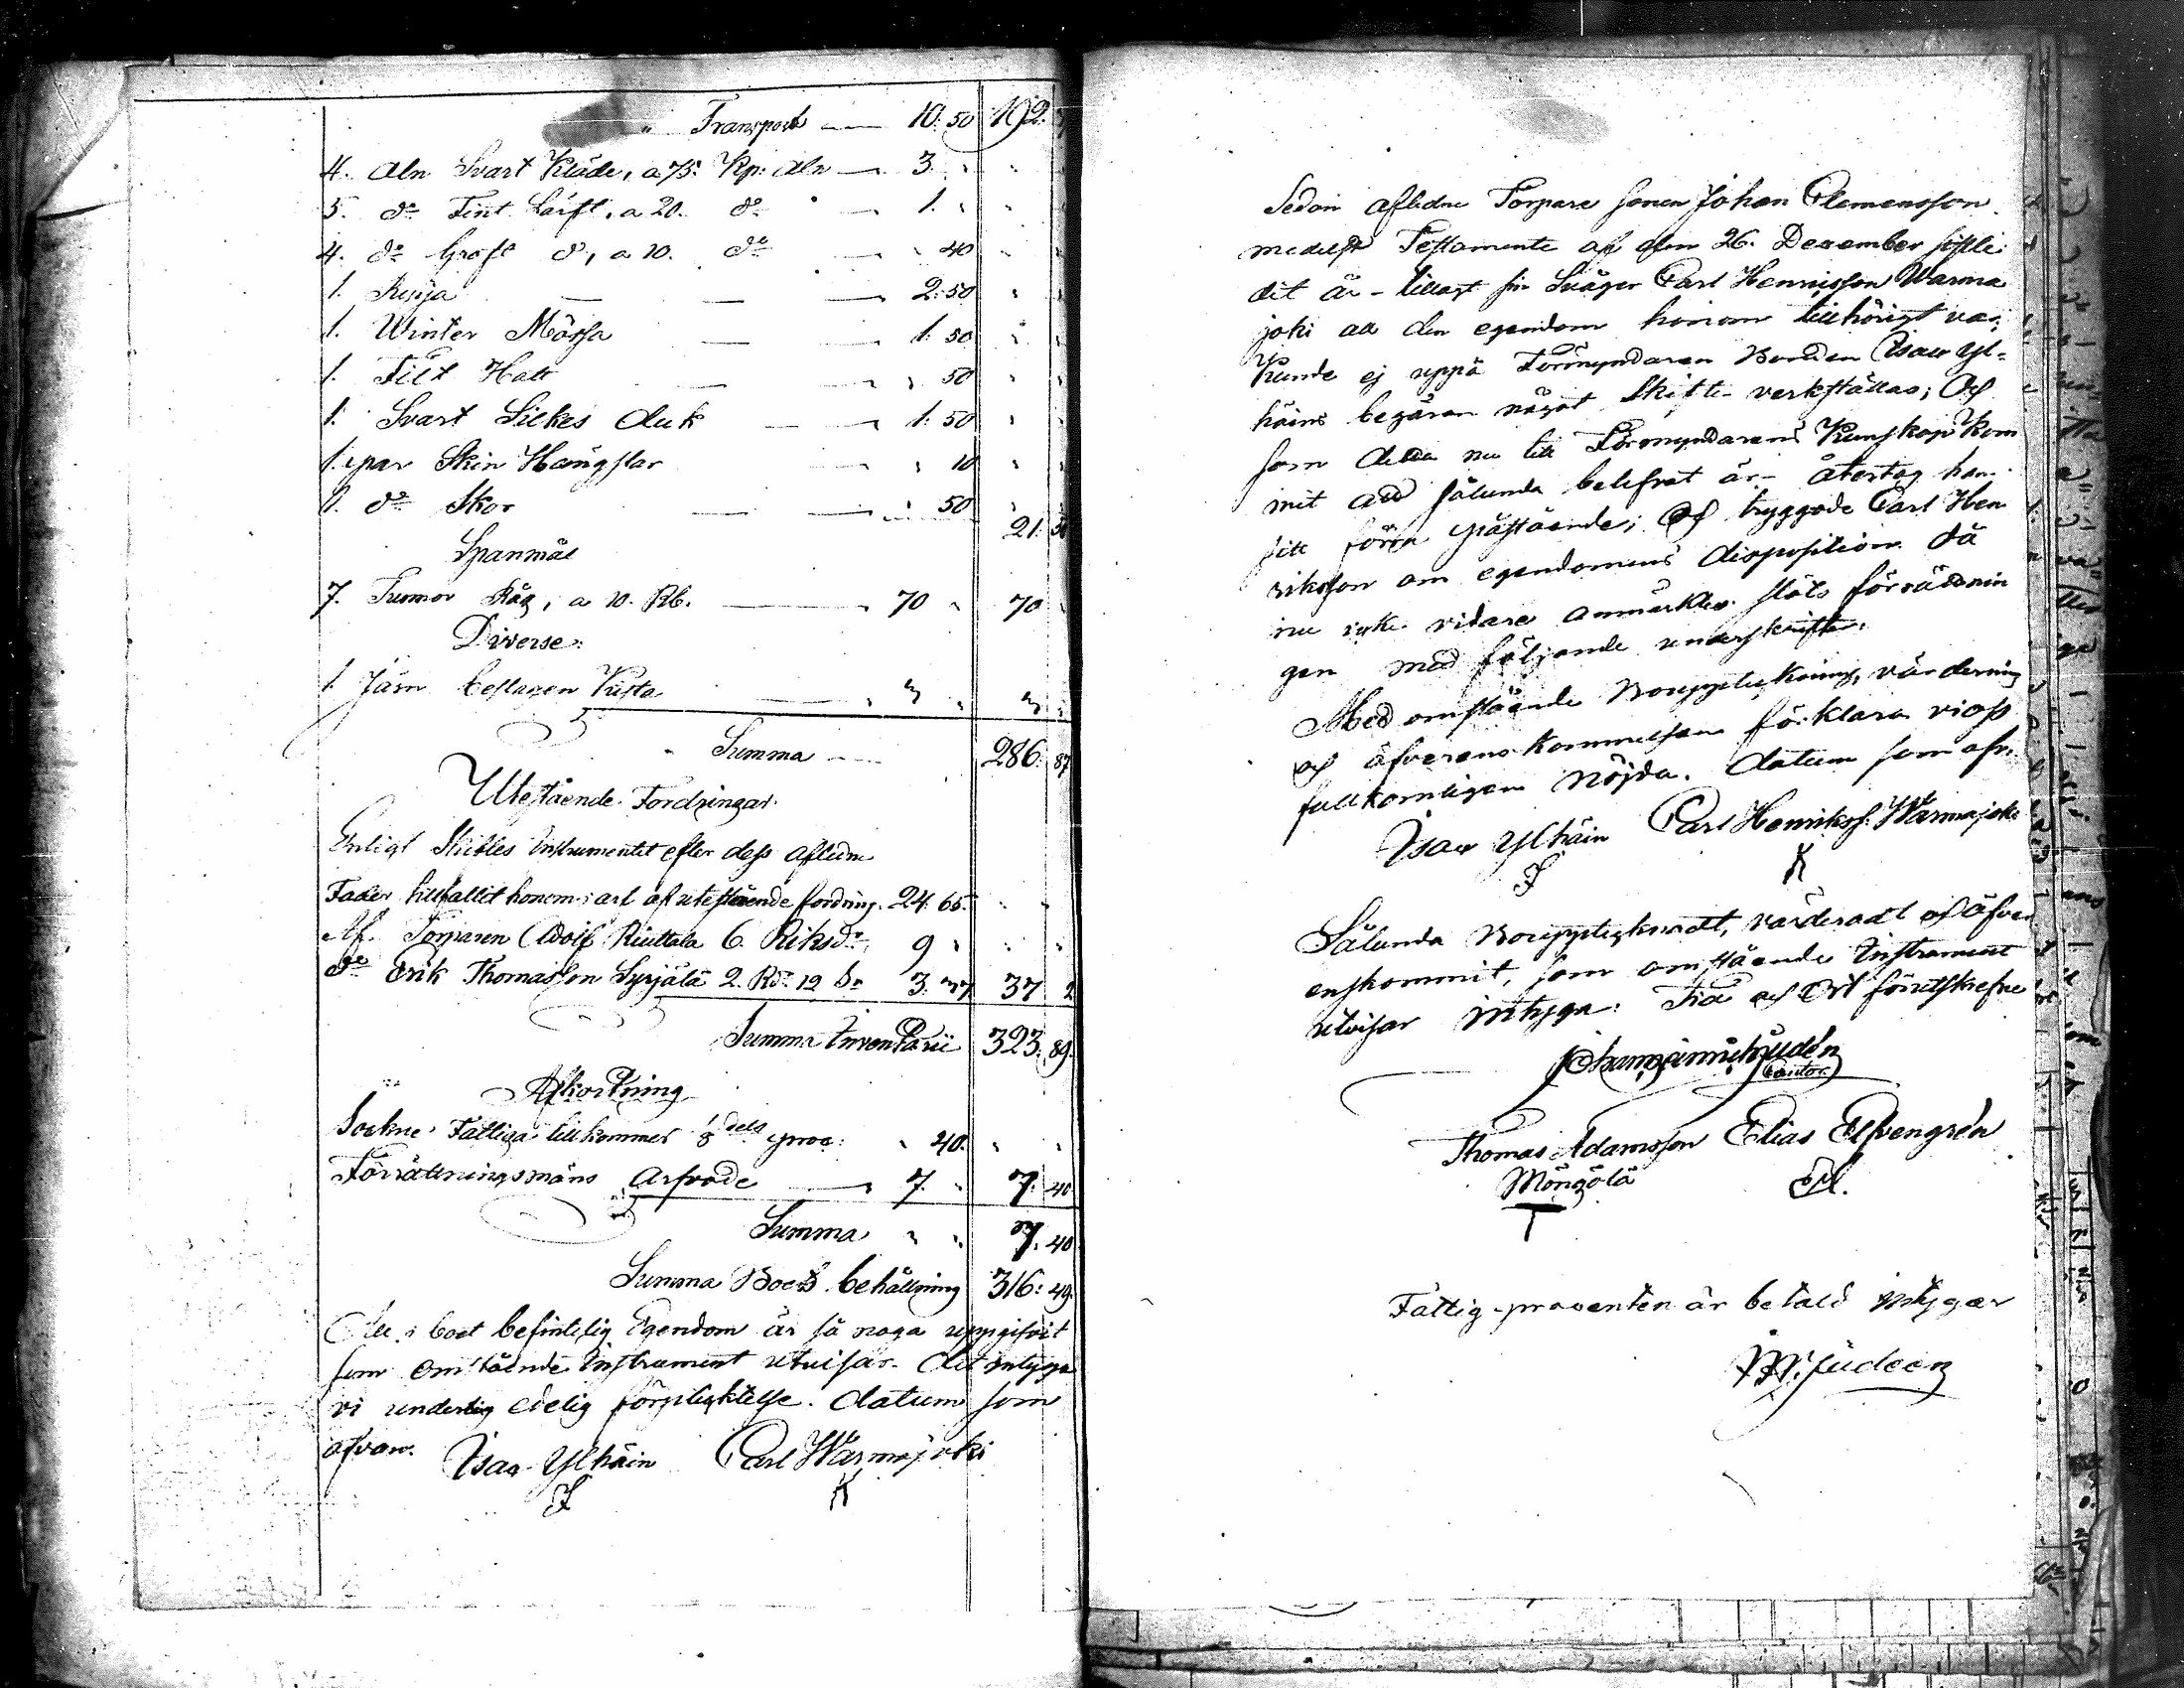 Transport — 10: 50 192:
4. Aln Svart Kläde, a 75: Kp: Aln — 3. "
5. do Fint Lärft, a 20. do — 1. "
4. do Groft do, a 10. do — " 40
1. Ryija — 2: 50
1. Winter Mössa — 1: 50
1. Filt Hatt — " 50
1. Svart Silkes duk — 1: 50
1. par Skin Hangskar — " 10
1. do Skor — " 50 21: 50
Spanmål
7. Tunnor Råg, a 10. Rb. — 70 " 70
Diverse:
1. Järn beslagen Kista — 3 " 3 "
Summa — 286: 87
Utestående Fordringar.
Enligt Skiftes Instrumentet efter dess aflidne
Fader tillfallit honom i arf af utestående fordring. 24: 65.
Af Torparen Adolf Riuttala 6. Riksdr 9 "
do Erik Thomasson Syrjälä 2. Rd: 12 s. 3: 37 37 2
Summa Inventarii 323: 89.
Afkortning
Sockne Fattiga tillkommer 1/8 dels proc: " 40.
Förrättningsmäns Arfvode — 7. " 7: 40
Summa " " 7. 40
Summa Boets behållning 316: 49.
All i boet befintelig Egendom är så noga uppgifvit
som omstående Instrument utvisar. Det intyga
vi under edelig förpligktelse. Datum som
ofvan. Isac Ylhäin Carl Warmajoki
Sedan aflidne Torpare sonen Johan Clemensson
medelst Testamente af den 26. December sistle-
dit år - tillagt sin Svåger Carl Henricsson Warma
joki all den egendom honom tillhörigt var;
Kunde ej uppå Förmyndaren Bonden Isac Yl-
häins begäran något Skifte verkställas; Och
som detta nu till Förmyndarens Kunskap Kom
mit att sålunda belefvat är - återtog han
sitt förra påstående; Och tryggade Carl Hen
riksson om egendomens disposition. Då
nu icke vidare anmärktes slöts förrättnin
gen med följande underskrifter.
Med omstående Bouppteckning, värdering
och öfverens kommelsen förklara vi oss
fullkomligen nöjda. Datum som ofv:
Isac Ylhäin Carl Henrikss: Warmajoki
Sålunda Bouppteknadt, värderadt och öfver
enskommit, som omstående Instrument
utvisar intyga: Tid och Ort förutskrefne
Cantor
Thomas Adamsson Elias Elfvengrén
Möngölä
Fattig-procenten är betald intygar